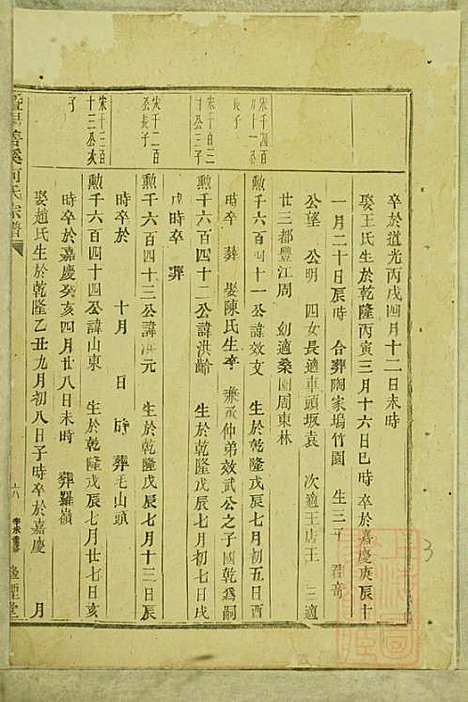 卒於道光丙戌四月十二日未時
娶王氏生於乾隆丙寅三月十六日巳時卒於嘉慶庚辰十
一月二十日辰時 合葬陶家塢竹園 生三子 君奇
公望 公明 四女長適車頭坂袁 次適王店王 三適
廿三都豐江周 幼適桑園周東林
宋千四百
長子
勲千六百四十一公諱效文 生於乾隆戊辰七月初五日酉
時卒 葬 娶陳氏生卒 兼承仲弟效武公之子國乾為嗣
宋千百二
公三子
勲千六百四十二公諱洪齡 生於乾隆戊辰七月初七日戌
時卒 葬
宋千二百
公長子
勲千六百四十三公諱洪元 生於乾隆戊辰七月十三日辰
時卒於 十月 日 時 葬毛山頭
宋千三百
十三公次
子
勲千六百四十四公諱山東 生於乾隆戊辰七月廿七日亥
時卒於嘉慶癸亥四月廿八日未時 葬羅嶺
娶趙氏生於乾隆乙丑九月初八日子時卒於嘉慶 月
何氏宗譜
3